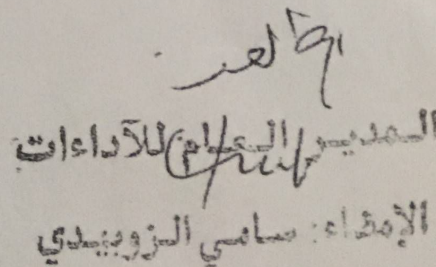 المدير العام للآداءات
الإمضاء: سامي الزوبيدي